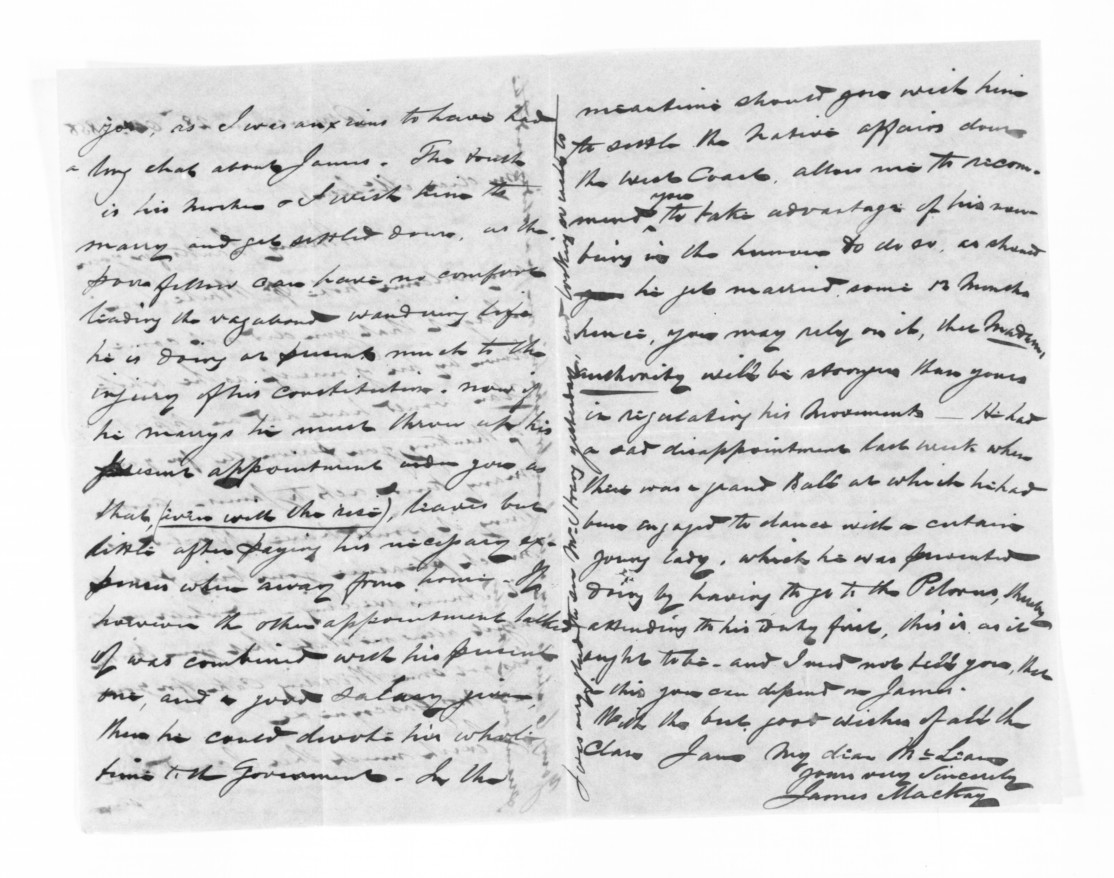 you, as I was anxious to have had
a long chat about James. The truth
is his Mother & I wish him to
marry and get settled down, as the
poor fellow can have no comfort
leading the vagabond wandering life
he is doing at present much to the
injury of his constitution. now if
he marrys he must throw up his
present appointment under you, as
that (even with the rise), leaves but
little after paying his necessary ex-
penses when away from home. If
however the other appointment talked
of was combined with his present
one, and a good salary given,
then he could devote his whole
time to the Government. In the
meantime should you wish him
to settle the Native affairs down
the West Coast, allow me to recom-
mend you to take advantage of his now
being in the humour to do so, as should
he get married some 12 Months
hence, you may rely on it, that Madams
authority will be stronger than yours
in regulating his Movements — He had
a sad disappointment last week when
there was a grand Ball at which he had
been engaged to dance with a certain
young lady, which he was prevented
doing by having to go to the Pelorus, thereby
attending to his Duty first, this is as it
ought to be - and I need not tell you, that
in this you can depend on James.
With the best good wishes of all the
Clan I am My dear McLean
yours very Sincerely
James Mackay
I was very glad to see yesterday, and looking so well